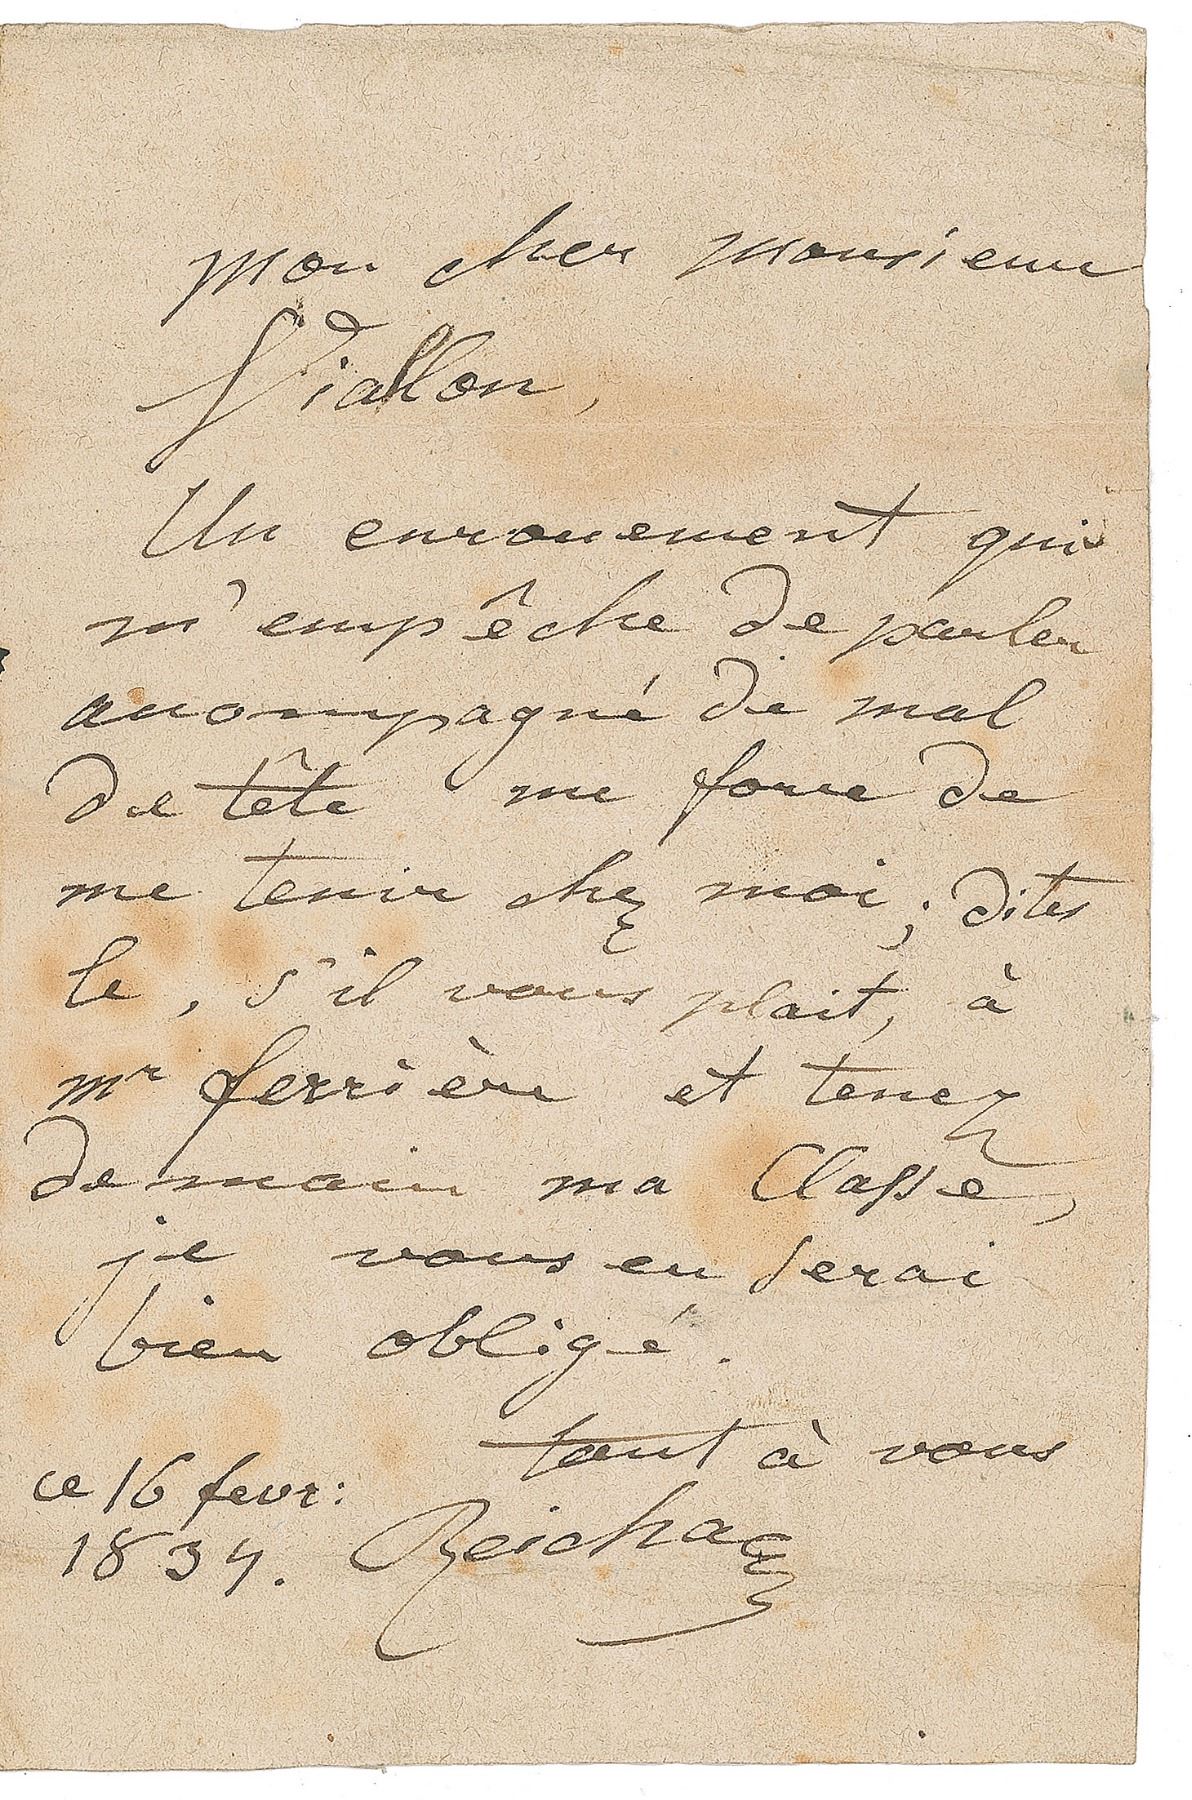 mon cher monsieur
Viallon,
Un enrouement qui
m'empêche de parler
accompagné de mal
de tête me force de
me tenir chez moi; dites
le, s'il vous plait, à
mr ferrière et tenez
demain ma Classe,
je vous en serai
bien obligé.
tout à vous
ce 16 fevr:
1834. Reicha